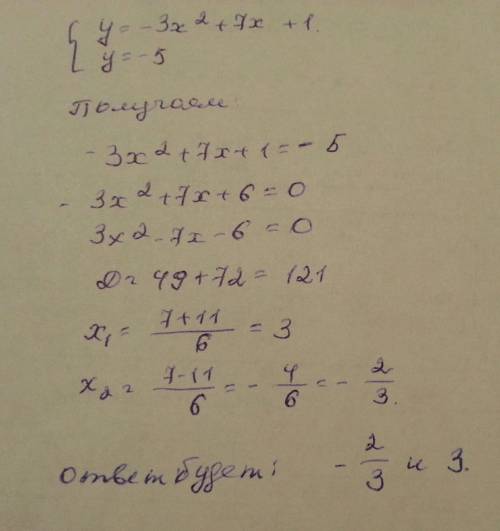 { y = -3x² + 7x + 1.
y = -5
Получаем:
-3x² + 7x + 1 = -5
-3x² + 7x + 6 = 0
3x² - 7x - 6 = 0
D = 49 + 72 = 121
x₁ = (7+11)/6 = 3
x₂ = (7-11)/6 = -4/6 = -2/3.
ответ будет: -2/3 и 3.